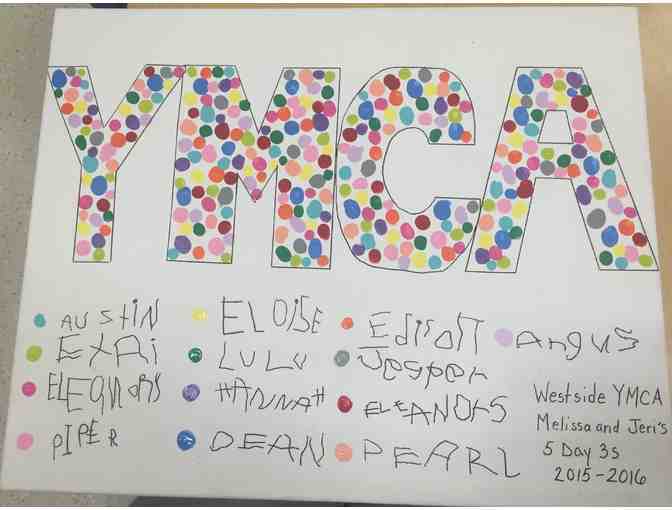 YMCA
AUStiN ELOiSE Angus
LULU Jesper
HANNAH ELEANORS
PIPER DEAN PEARL
Westside YMCA
Melissa and Jeri's
5 Day 3s
2015-2016